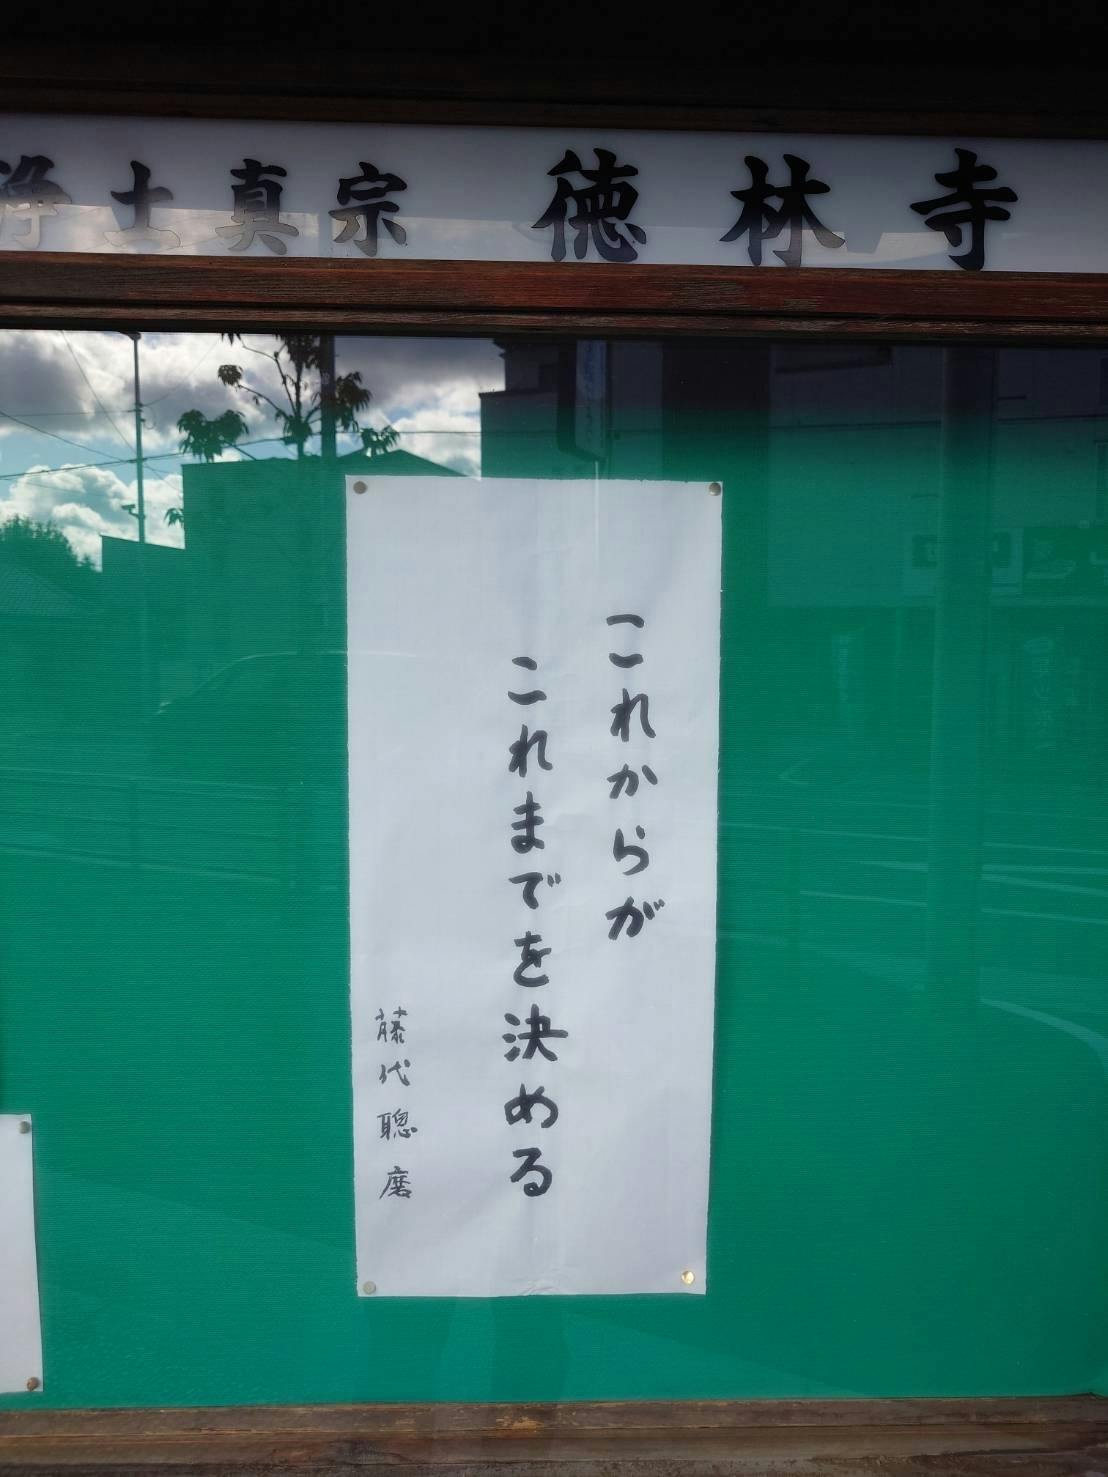 浄土真宗 徳林寺
これからが
これまでを決める
藤代聰磨